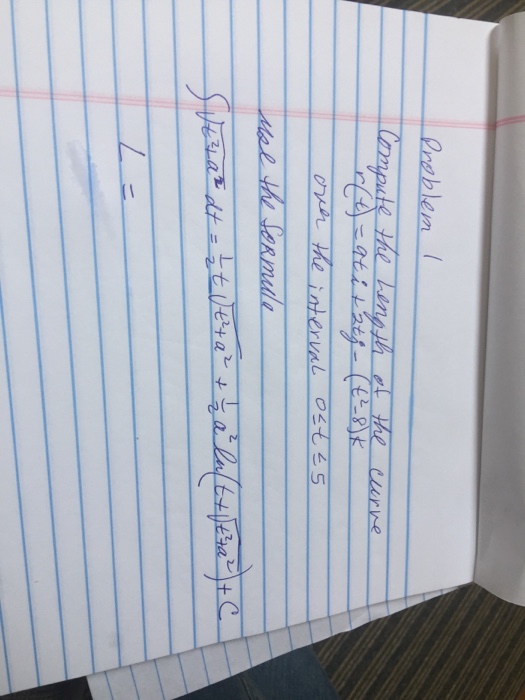 Problem 1
Compute the Length of the curve
r(t) = 9ti + 2tj - (t²-8)k
over the interval 0≤t≤5
use the formula
∫√t²+a² dt = ½t√t²+a² + ½a² ln(t+√t²+a²)+C
L =